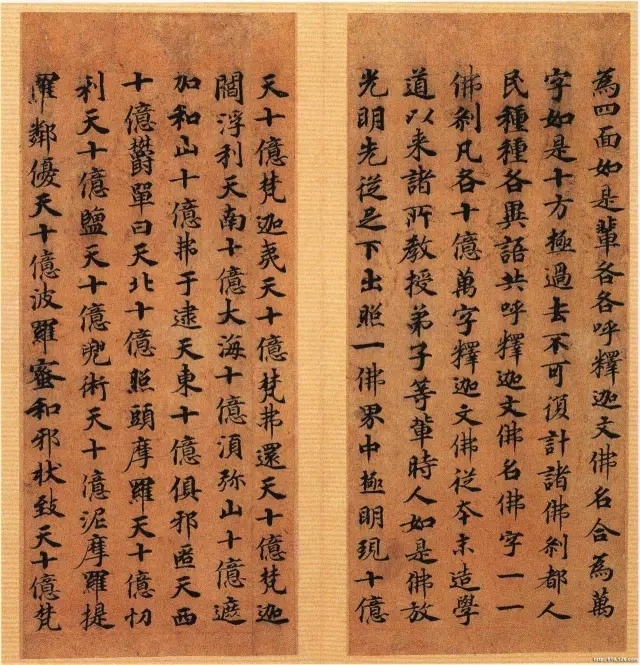 為四面如是輩各各呼釋迦文佛名合為萬
字如是十方極過去不可復計諸佛刹都人
民種種各異語共呼釋迦文佛名佛字一一
佛刹凡各十億萬字釋迦文佛従本末造學
道以来諸所教授弟子等輩時人如是佛放
光明光從足下出照一佛界中極明現十億
天十億梵迦夷天十億梵弗還天十億梵迦
閻浮利天南十億大海十億湏弥山十億遮
加和山十億弗于逮天東十億俱邪匿天西
十億欝單曰天北十億照頭摩羅天十億忉
利天十億鹽天十億兜術天十億泥摩羅提
羅鄰優天十億波羅蜜和邪状致天十億梵